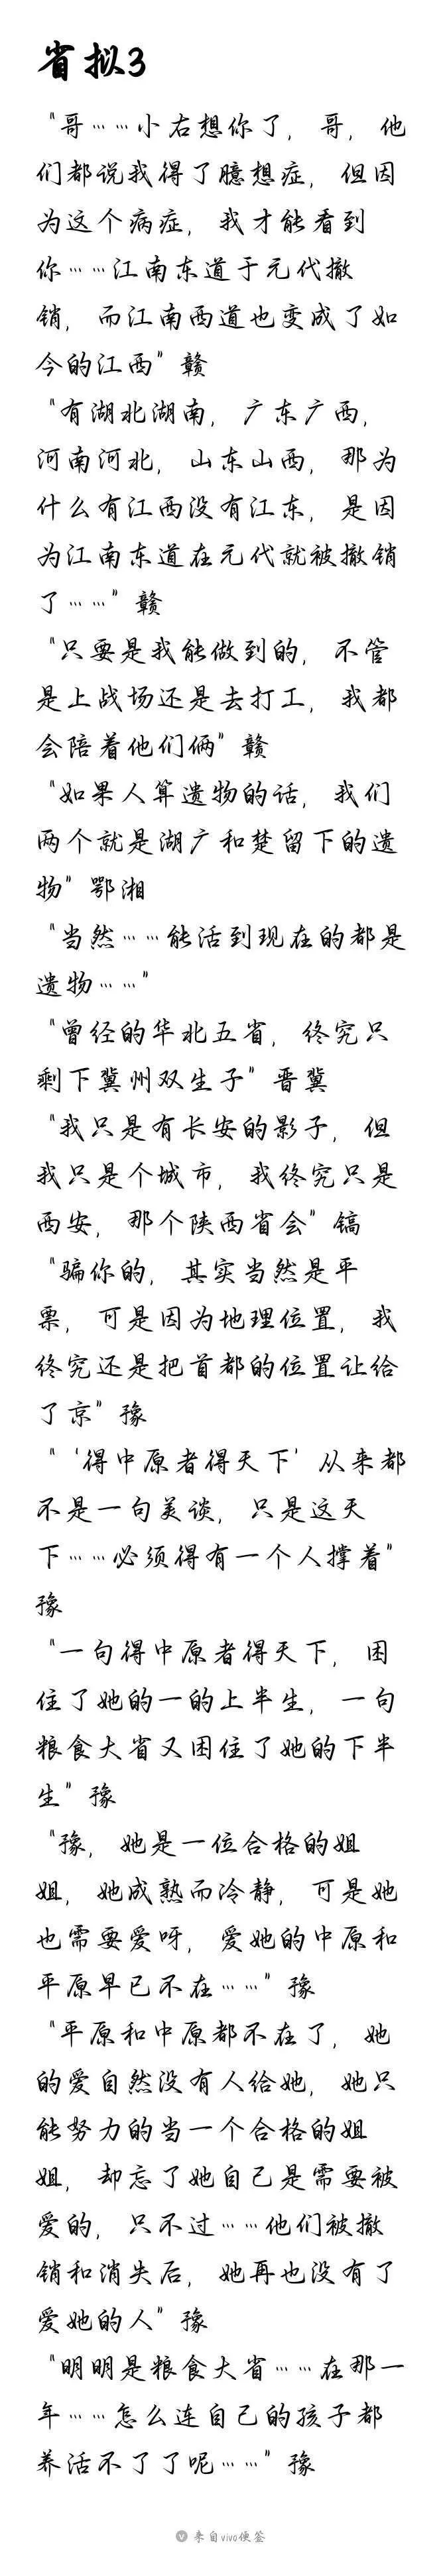 省拟3
“哥……小右想你了，哥，他
们都说我得了臆想症，但因
为这个病症，我才能看到
你……江南东道于元代撤
销，而江南西道也变成了如
今的江西”赣
“有湖北湖南，广东广西，
河南河北，山东山西，那为
什么有江西没有江东，是因
为江南东道在元代就被撤销
了……”赣
“只要是我能做到的，不管
是上战场还是去打工，我都
会陪着他们俩”赣
“如果人算遗物的话，我们
两个就是湖广和楚留下的遗
物”鄂湘
“当然……能活到现在的都是
遗物……”
“曾经的华北五省，终究只
剩下冀州双生子”晋冀
“我只是有长安的影子，但
我只是个城市，我终究只是
西安，那个陕西省会”镐
“骗你的，其实当然是平
票，可是因为地理位置，我
终究还是把首都的位置让给
了京”豫
“‘得中原者得天下’从来都
不是一句美谈，只是这天
下……必须得有一个人撑着”
豫
“一句得中原者得天下，困
住了她的一的上半生，一句
粮食大省又困住了她的下半
生”豫
“豫，她是一位合格的姐
姐，她成熟而冷静，可是她
也需要爱呀，爱她的中原和
平原早已不在……”豫
“平原和中原都不在了，她
的爱自然没有人给她，她只
能努力的当一个合格的姐
姐，却忘了她自己是需要被
爱的，只不过……他们被撤
销和消失后，她再也没有了
爱她的人”豫
“明明是粮食大省……在那一
年……怎么连自己的孩子都
养活不了了呢……”豫
来自vivo便签